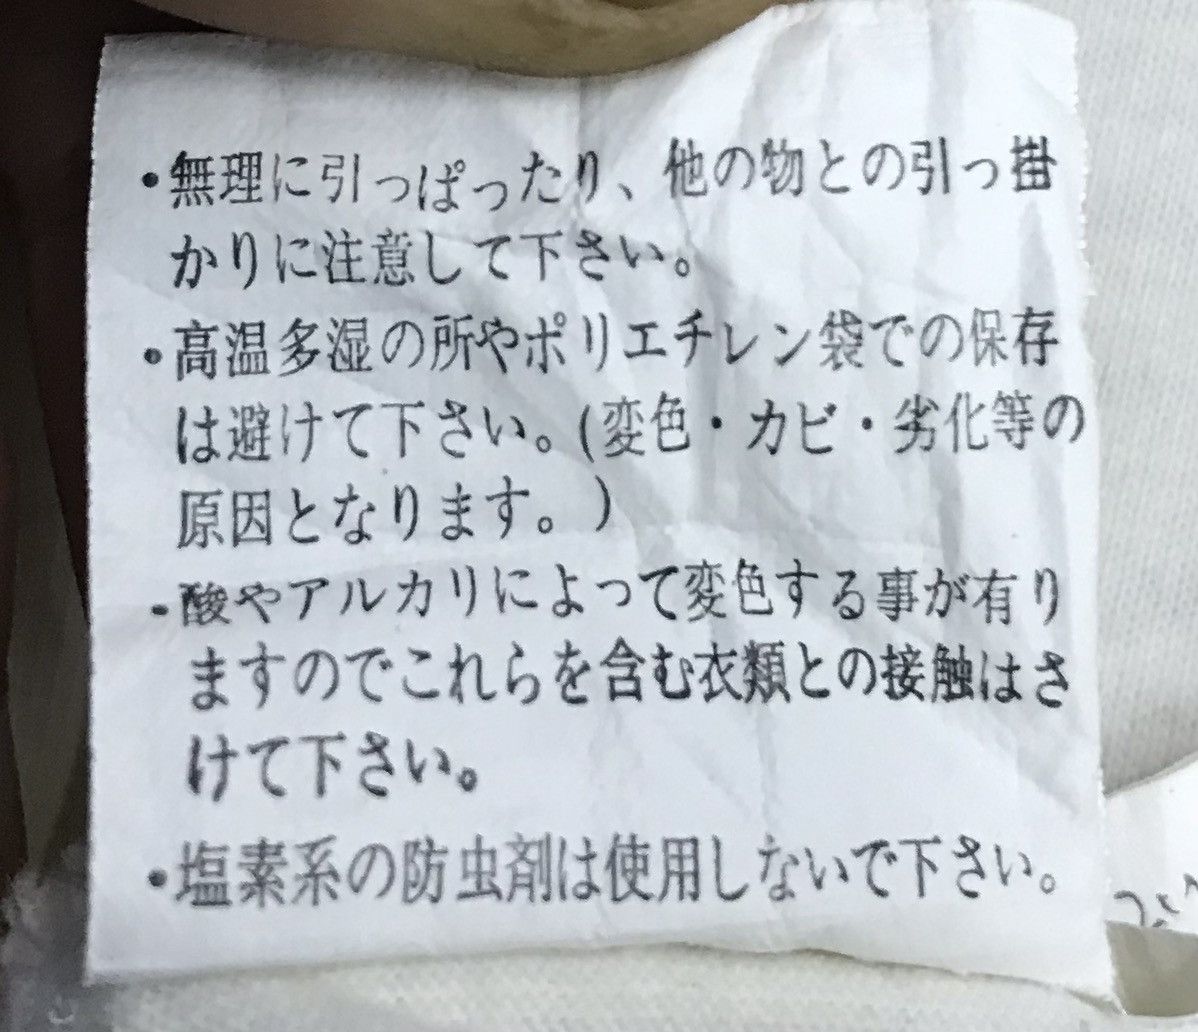 ・無理に引っぱったり、他の物との引っ掛
かりに注意して下さい。
・高温多湿の所やポリエチレン袋での保存
は避けて下さい。(変色・カビ・劣化等の
原因となります。)
・酸やアルカリによって変色する事が有り
ますのでこれらを含む衣類との接触はさ
けて下さい。
・塩素系の防虫剤は使用しないで下さい。